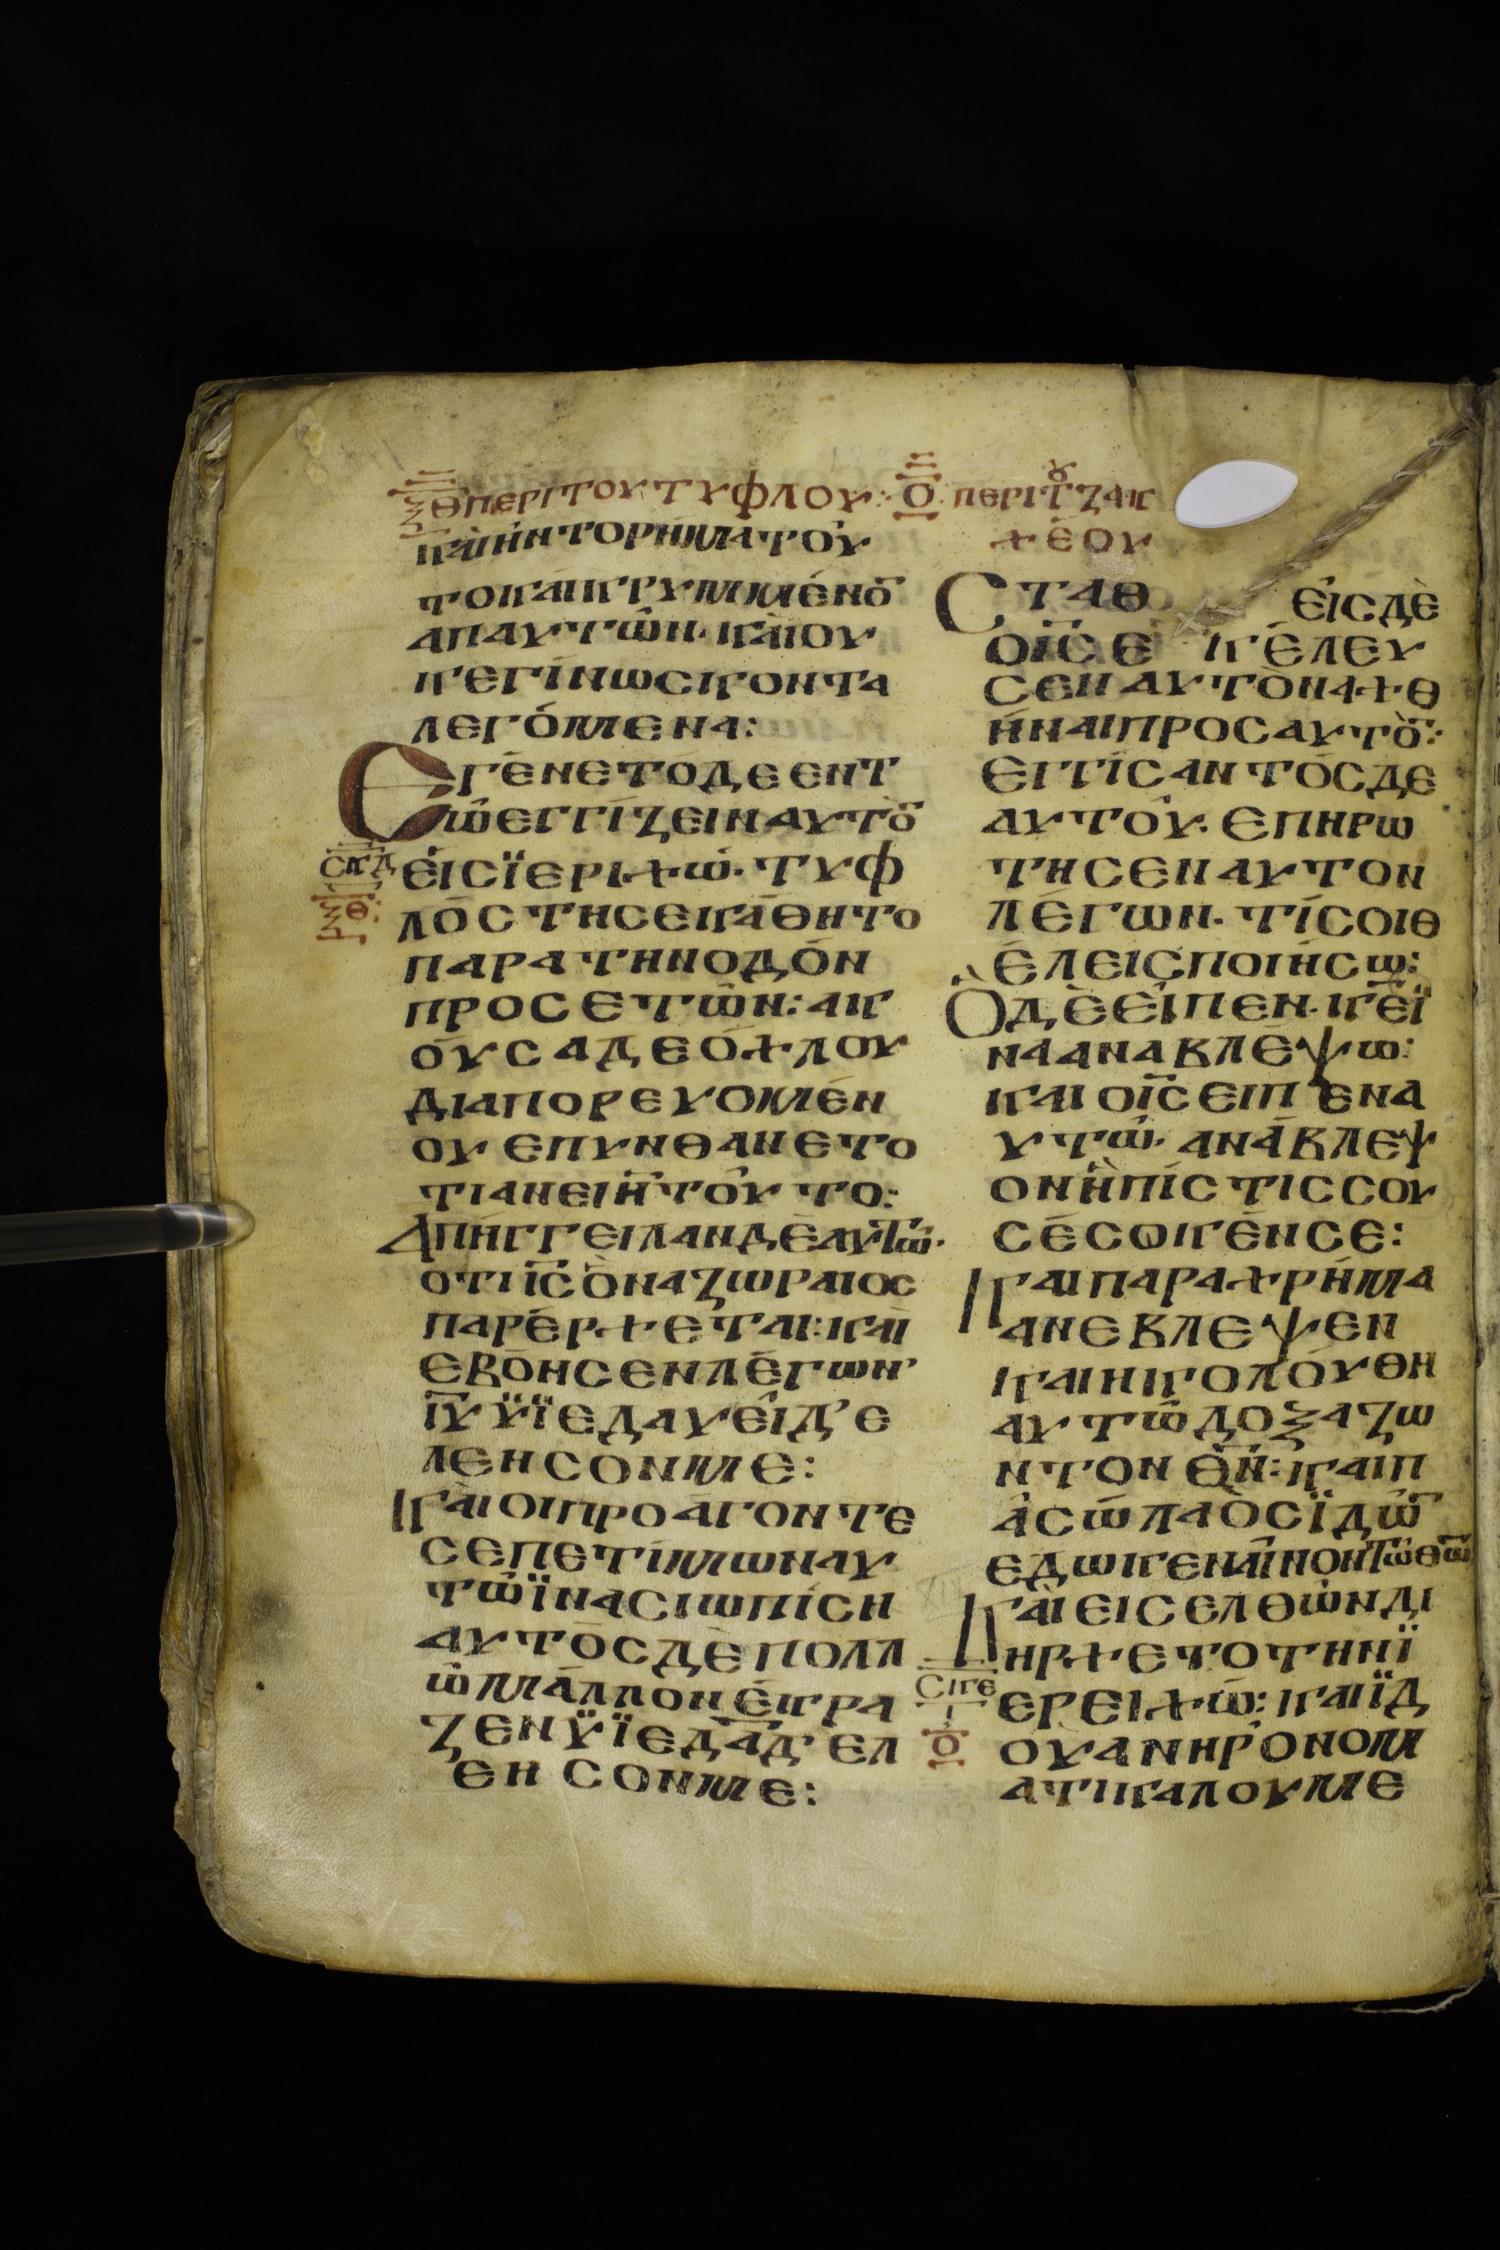 ΞΘ ΠΕΡΙ ΤΟΥ ΤΥΦΛΟΥ: Ο ΠΕΡΙ Τ ΖΑΚ
ΧΕΟΥ
ΚΑΙ ΗΝ ΤΟ ΡΗΜΑ ΤΟΥ
ΤΟ ΚΑΙΚΡΥΜΜΕΝΟ̄
ΑΠ ΑΥΤΩΝ· ΚΑΙ ΟΥ
Κ ΕΓΙΝΩΣΚΟΝ ΤΑ
ΛΕΓΟΜΕΝΑ:
ΕΓΕΝΕΤΟ ΔΕ ΕΝ Τ
Ω ΕΓΓΙΖΕΙΝ ΑΥΤΟ̄
ΣΚΔ
ΞΘ:
ΕΙΣ ΪΕΡΙΧΩ· ΤΥΦ
ΛΟΣ ΤΗΣ ΕΚΑΘΗΤΟ
ΠΑΡΑ ΤΗΝ ΟΔΟΝ
ΠΡΟΣΕΤΩΝ: ΑΚ
ΟΥΣΑ ΔΕ ΟΧΛΟΥ
ΔΙΑΠΟΡΕΥΟΜΕΝ
ΟΥ ΕΠΥΝΘΑΝΕΤΟ
ΤΙ ΑΝ ΕΙΗ ΤΟΥΤΟ:
ΑΠΗΓΓΕΙΛΑΝ ΔΕ ΑΥΤΩ·
ΟΤΙ Ι̅Σ̅ Ο ΝΑΖΩΡΑΙΟΣ
ΠΑΡΕΡΧΕΤΑΙ: ΚΑΙ
ΕΒΟΗΣΕΝ ΛΕΓΩΝ·
Ι̅Υ̅ ΥΪΕ ΔΑΥΕΙΔ Ε
ΛΕΗΣΟΝ ΜΕ:
ΚΑΙ ΟΙ ΠΡΟΑΓΟΝΤΕ
Σ ΕΠΕΤΙΜΩΝ ΑΥ
ΤΩ ΪΝΑ ΣΙΩΠΙΣΗ
ΑΥΤΟΣ ΔΕ ΠΟΛΛ
Ω ΜΑΛΛΟΝ ΕΚΡΑ
ΖΕΝ ΥΪΕ Δ̅Α̅Δ̅ ΕΛ
ΕΗΣΟΝ ΜΕ:
ΣΤΑΘ ΕΙΣ ΔΕ
Ο Ι̅Σ̅ Ε ΚΕΛΕΥ
ΣΕΝ ΑΥΤΟΝ ΑΧΘ
ΗΝΑΙ ΠΡΟΣ ΑΥΤΟ̄:
ΕΓΓΙΣΑΝΤΟΣ ΔΕ
ΑΥΤΟΥ· ΕΠΗΡΩ
ΤΗΣΕΝ ΑΥΤΟΝ
ΛΕΓΩΝ· ΤΙ ΣΟΙ Θ
ΕΛΕΙΣ ΠΟΙΗΣΩ:
Ο ΔΕ ΕΙΠΕΝ· Κ̅Ε̅ Ϊ
ΝΑ ΑΝΑΒΛΕΨΩ:
ΚΑΙ Ο Ι̅Σ̅ ΕΙΠΕΝ Α
ΥΤΩ· ΑΝΑΒΛΕΨ
ΟΝ Η ΠΙΣΤΙΣ ΣΟΥ
ΣΕΣΩΚΕΝ ΣΕ:
ΚΑΙ ΠΑΡΑΧΡΗΜΑ
ΑΝΕΒΛΕΨΕΝ
ΚΑΙ ΗΚΟΛΟΥΘΗ
ΑΥΤΩ ΔΟΞΑΖΩ
Ν ΤΟΝ Θ̅Ν̅: ΚΑΙ Π
ΑΣ Ω ΛΑΟΣ ΪΔΩ̄
ΕΔΩΚΕΝ ΑΙΝΟΝ ΤΩ Θ̅Ω̅
ΚΑΙ ΕΙΣΕΛΘΩΝ ΔΙ
ΗΡΧΕΤΟ ΤΗΝ Ϊ
ΣΚΕ
Ο
ΕΡΕΙΧΩ: ΚΑΙ ΪΔ
ΟΥ ΑΝΗΡ ΟΝΟΜ
ΑΤΙ ΚΑΛΟΥΜΕ